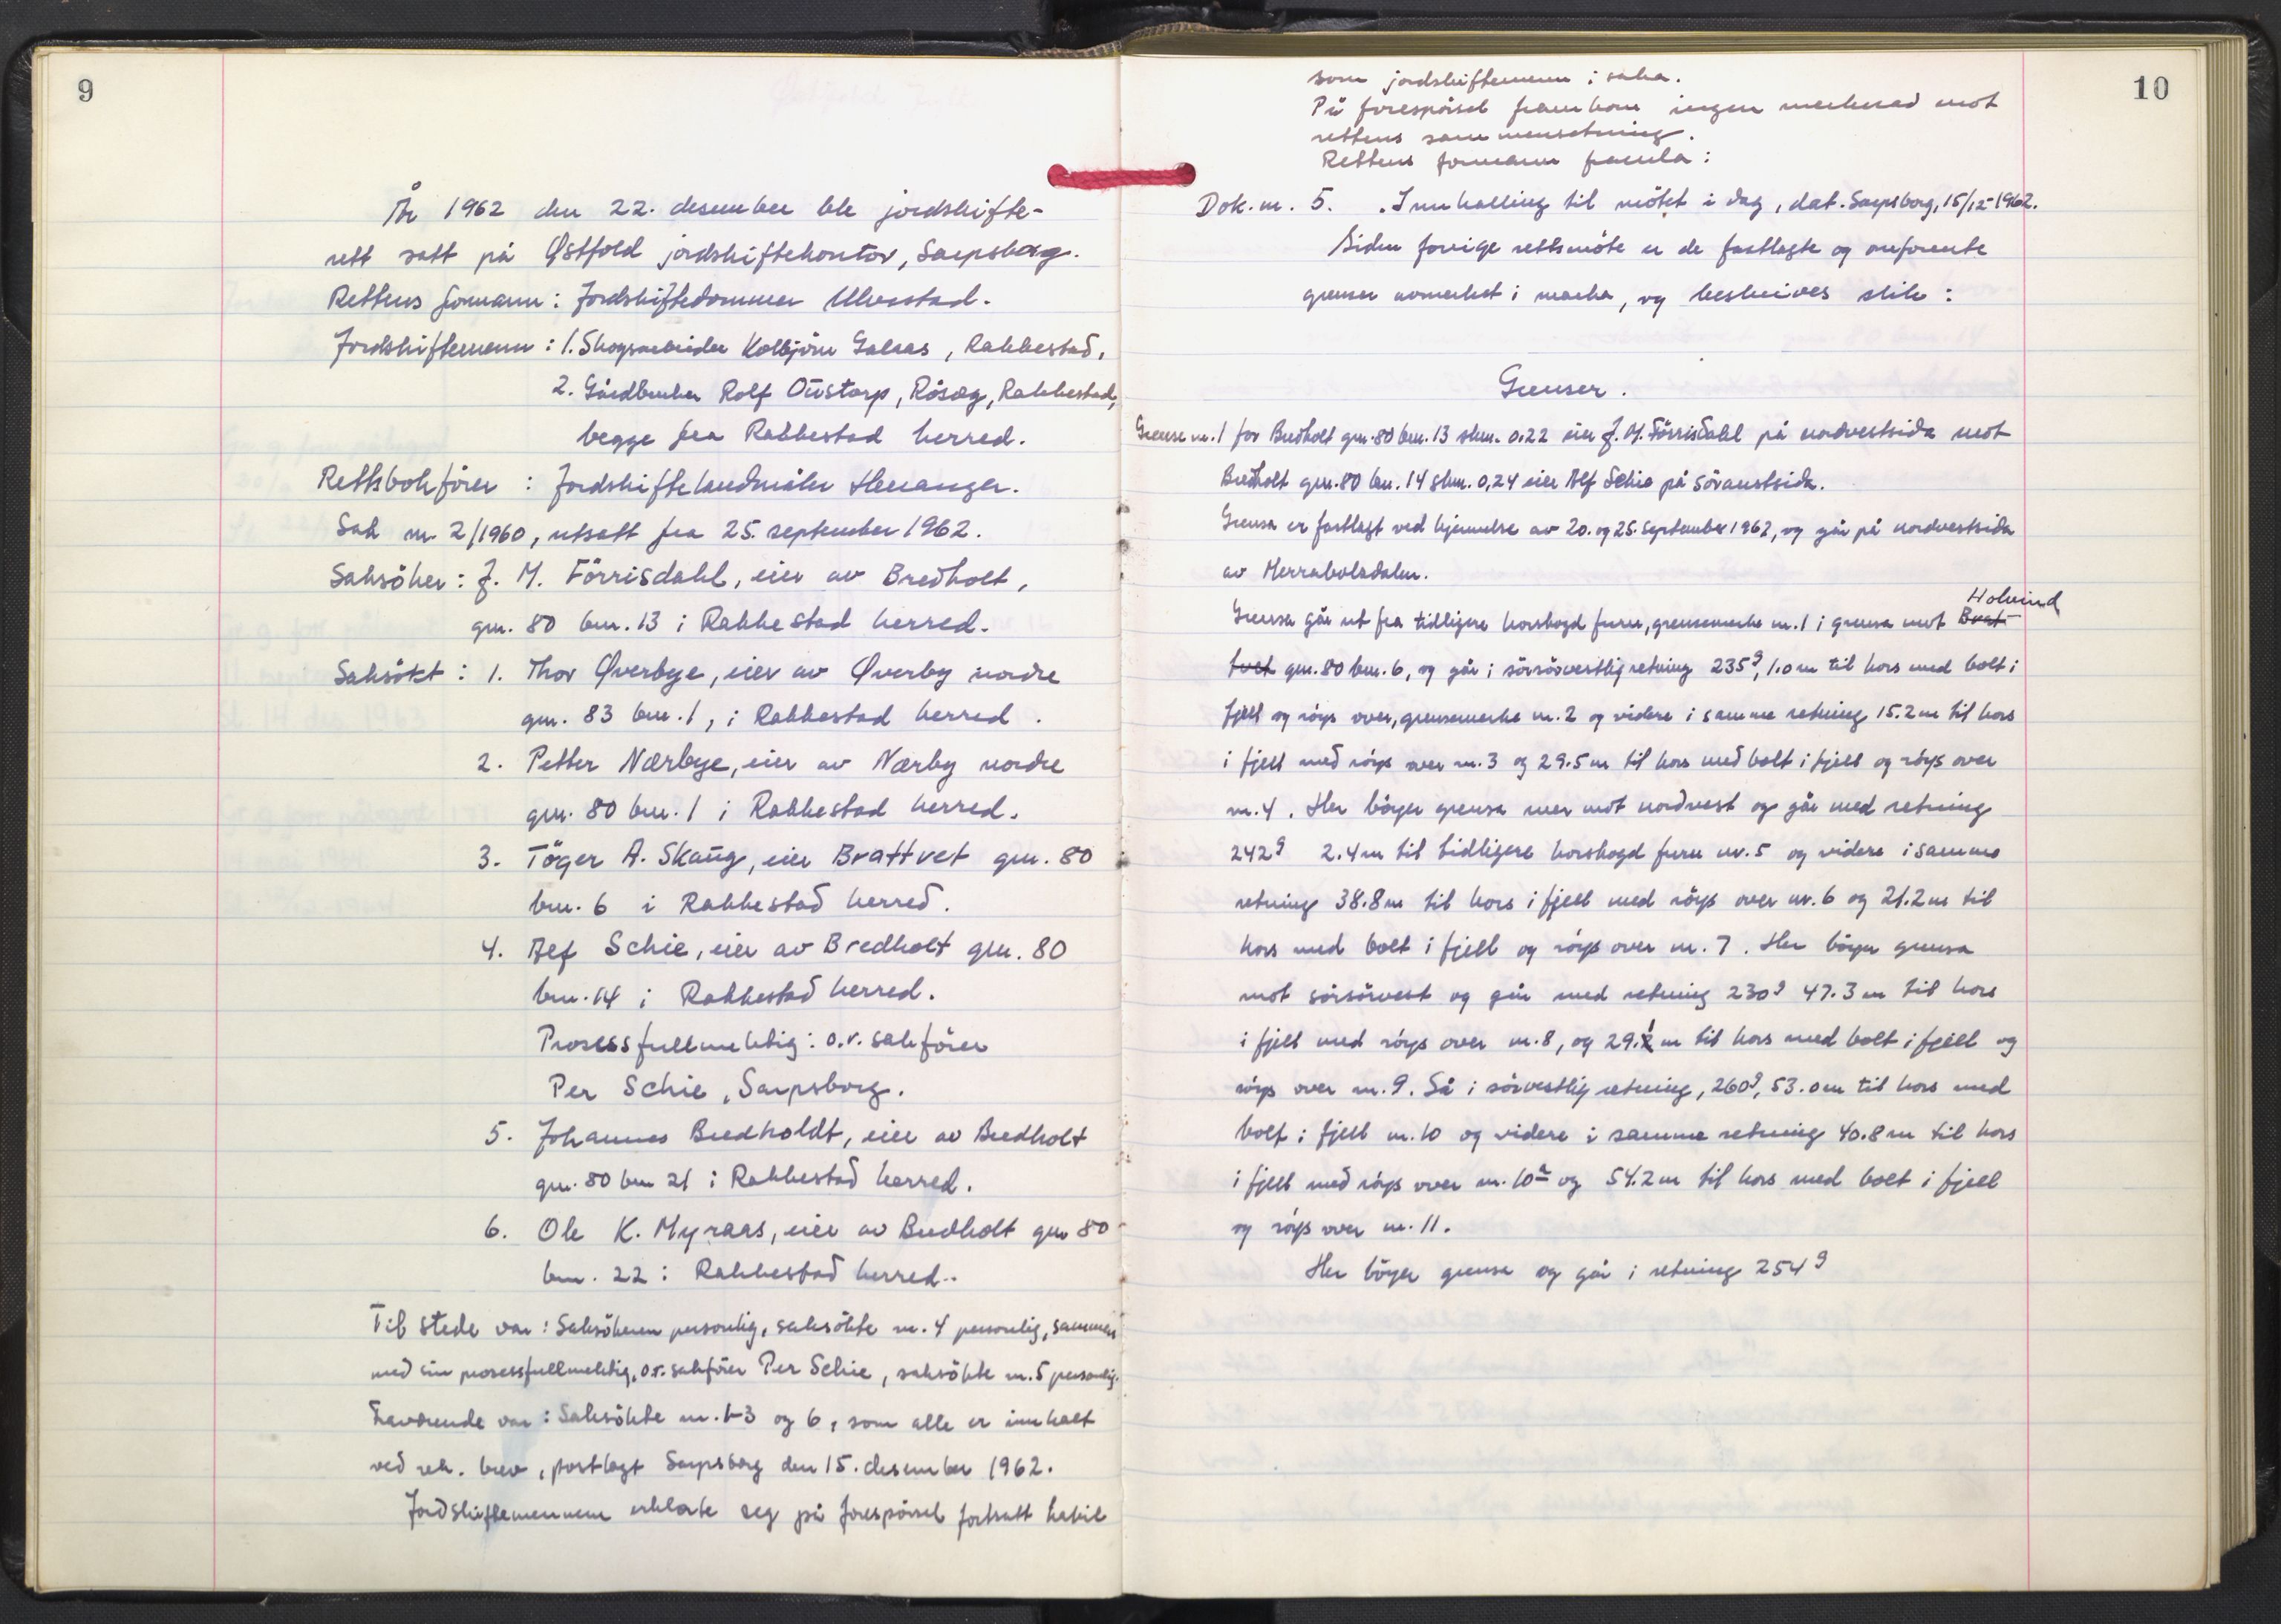 9
År 1962 den 22. desember ble jordskifte-
rett satt på Østfold jordskiftekontor, Sarpsborg.
Rettens formann: Jordskiftedommer Ulvestad.
Jordskiftemenn: 1. Skogsarbeider Kolbjörn Galaas, Rakkestad,
2. Gårdbruker Rolf Oŭstorp, Råsæg, Rakkestad,
begge fra Rakkestad herred.
Rettsbokförer: Jordskiftelandmåler Henanger.
Sak nr. 2/1960, utsatt fra 25. september 1962.
Saksöker: J. M. Förrisdahl, eier av Bredholt,
gnr. 80 bnr. 13 i Rakkestad herred.
Saksökt: 1. Thor Øverbye, eier av Øverby nordre
gnr. 83 bnr. 1, i Rakkestad herred.
2. Petter Nærbye, eier av Nærby nordre
gnr. 80 bnr. 1 i Rakkestad herred.
3. Töger A. Skaŭg, eier Brattvet gnr. 80
bnr. 6 i Rakkestad herred.
4. Alf Schie, eier av Bredholt gnr. 80
bnr. 14 i Rakkestad herred.
Prosessfullmektig: o.r. sakförer
Per Schie, Sarpsborg.
5. Johannes Bredholdt, eier av Bredholt
gnr. 80 bnr 21 i Rakkestad herred.
6. Ole K. Myraas, eier av Bredholt gnr 80
bnr. 22 i Rakkestad herred.
Til stede var: Saksökeren personlig, saksökte nr. 4 personlig, sammen
med sin prosessfullmektig, o.r. sakförer Per Schie, saksökte nr. 5 personlig.
Fraværende var: Saksökte nr. 1-3 og 6, som alle er innkalt
ved rek. brev, postlagt Sarpsborg den 15. desember 1962.
Jordskiftemennene erklærte seg på forespörsel fortsatt habil
10
som jordskiftemenn i saka.
På forespörsel framkom ingen merknad mot
rettens sammensetning.
Rettens formann framla:
Dok. nr. 5. Innkalling til mötet i dag, dat. Sarpsborg, 15/12-1962.
Siden forrige rettsmöte er de fastlagte og omforente
grenser avmerket i marka, og beskrives slik:
Grenser.
Grense nr. 1 for Bredholt gnr. 80 bnr. 13 skm. 0.22 eier J. M. Förrisdahl på nordvestsida mot
Bredholt gnr. 80 bnr. 14 skm. 0,24 eier Alf Schie på söraustsida.
Grensa er fastlagt ved kjennelse av 20. og 25. september 1962, og går på nordvestsida
av Merrabolsdalen.
Grensa går ut fra tidligere korshogd furu, grensemerke nr. 1 i grensa mot Brat- Holvind
tvet gnr. 80 bnr. 6, og går i sörsörvestlig retning 235g, 1.0 m til kors med bolt i
fjell og röys over, grensemerke nr. 2 og videre i samme retning 15.2 m til kors
i fjell med röys over nr. 3 og 29.5 m til kors med bolt i fjell og röys over
nr. 4. Her böyer grensa mer mot nordvest og går med retning
242g 2.4 m til tidligere korshogd furu nr. 5 og videre i samme
retning 38.8 m til kors i fjell med röys over nr. 6 og 21.2 m til
kors med bolt i fjell og röys over nr. 7. Her böyer grensa
mot sörsörvest og går med retning 230g 47.3 m til kors
i fjell med röys over nr. 8, og 29.1 m til kors med bolt i fjell og
röys over nr. 9. Så i sörvestlig retning, 260g, 53.0 m til kors med
bolt i fjell nr. 10 og videre i samme retning 40.8 m til kors
i fjell med röys over nr. 10a og 54.2 m til kors med bolt i fjell
og röys over nr. 11.
Her böyer grensa og går i retning 254g